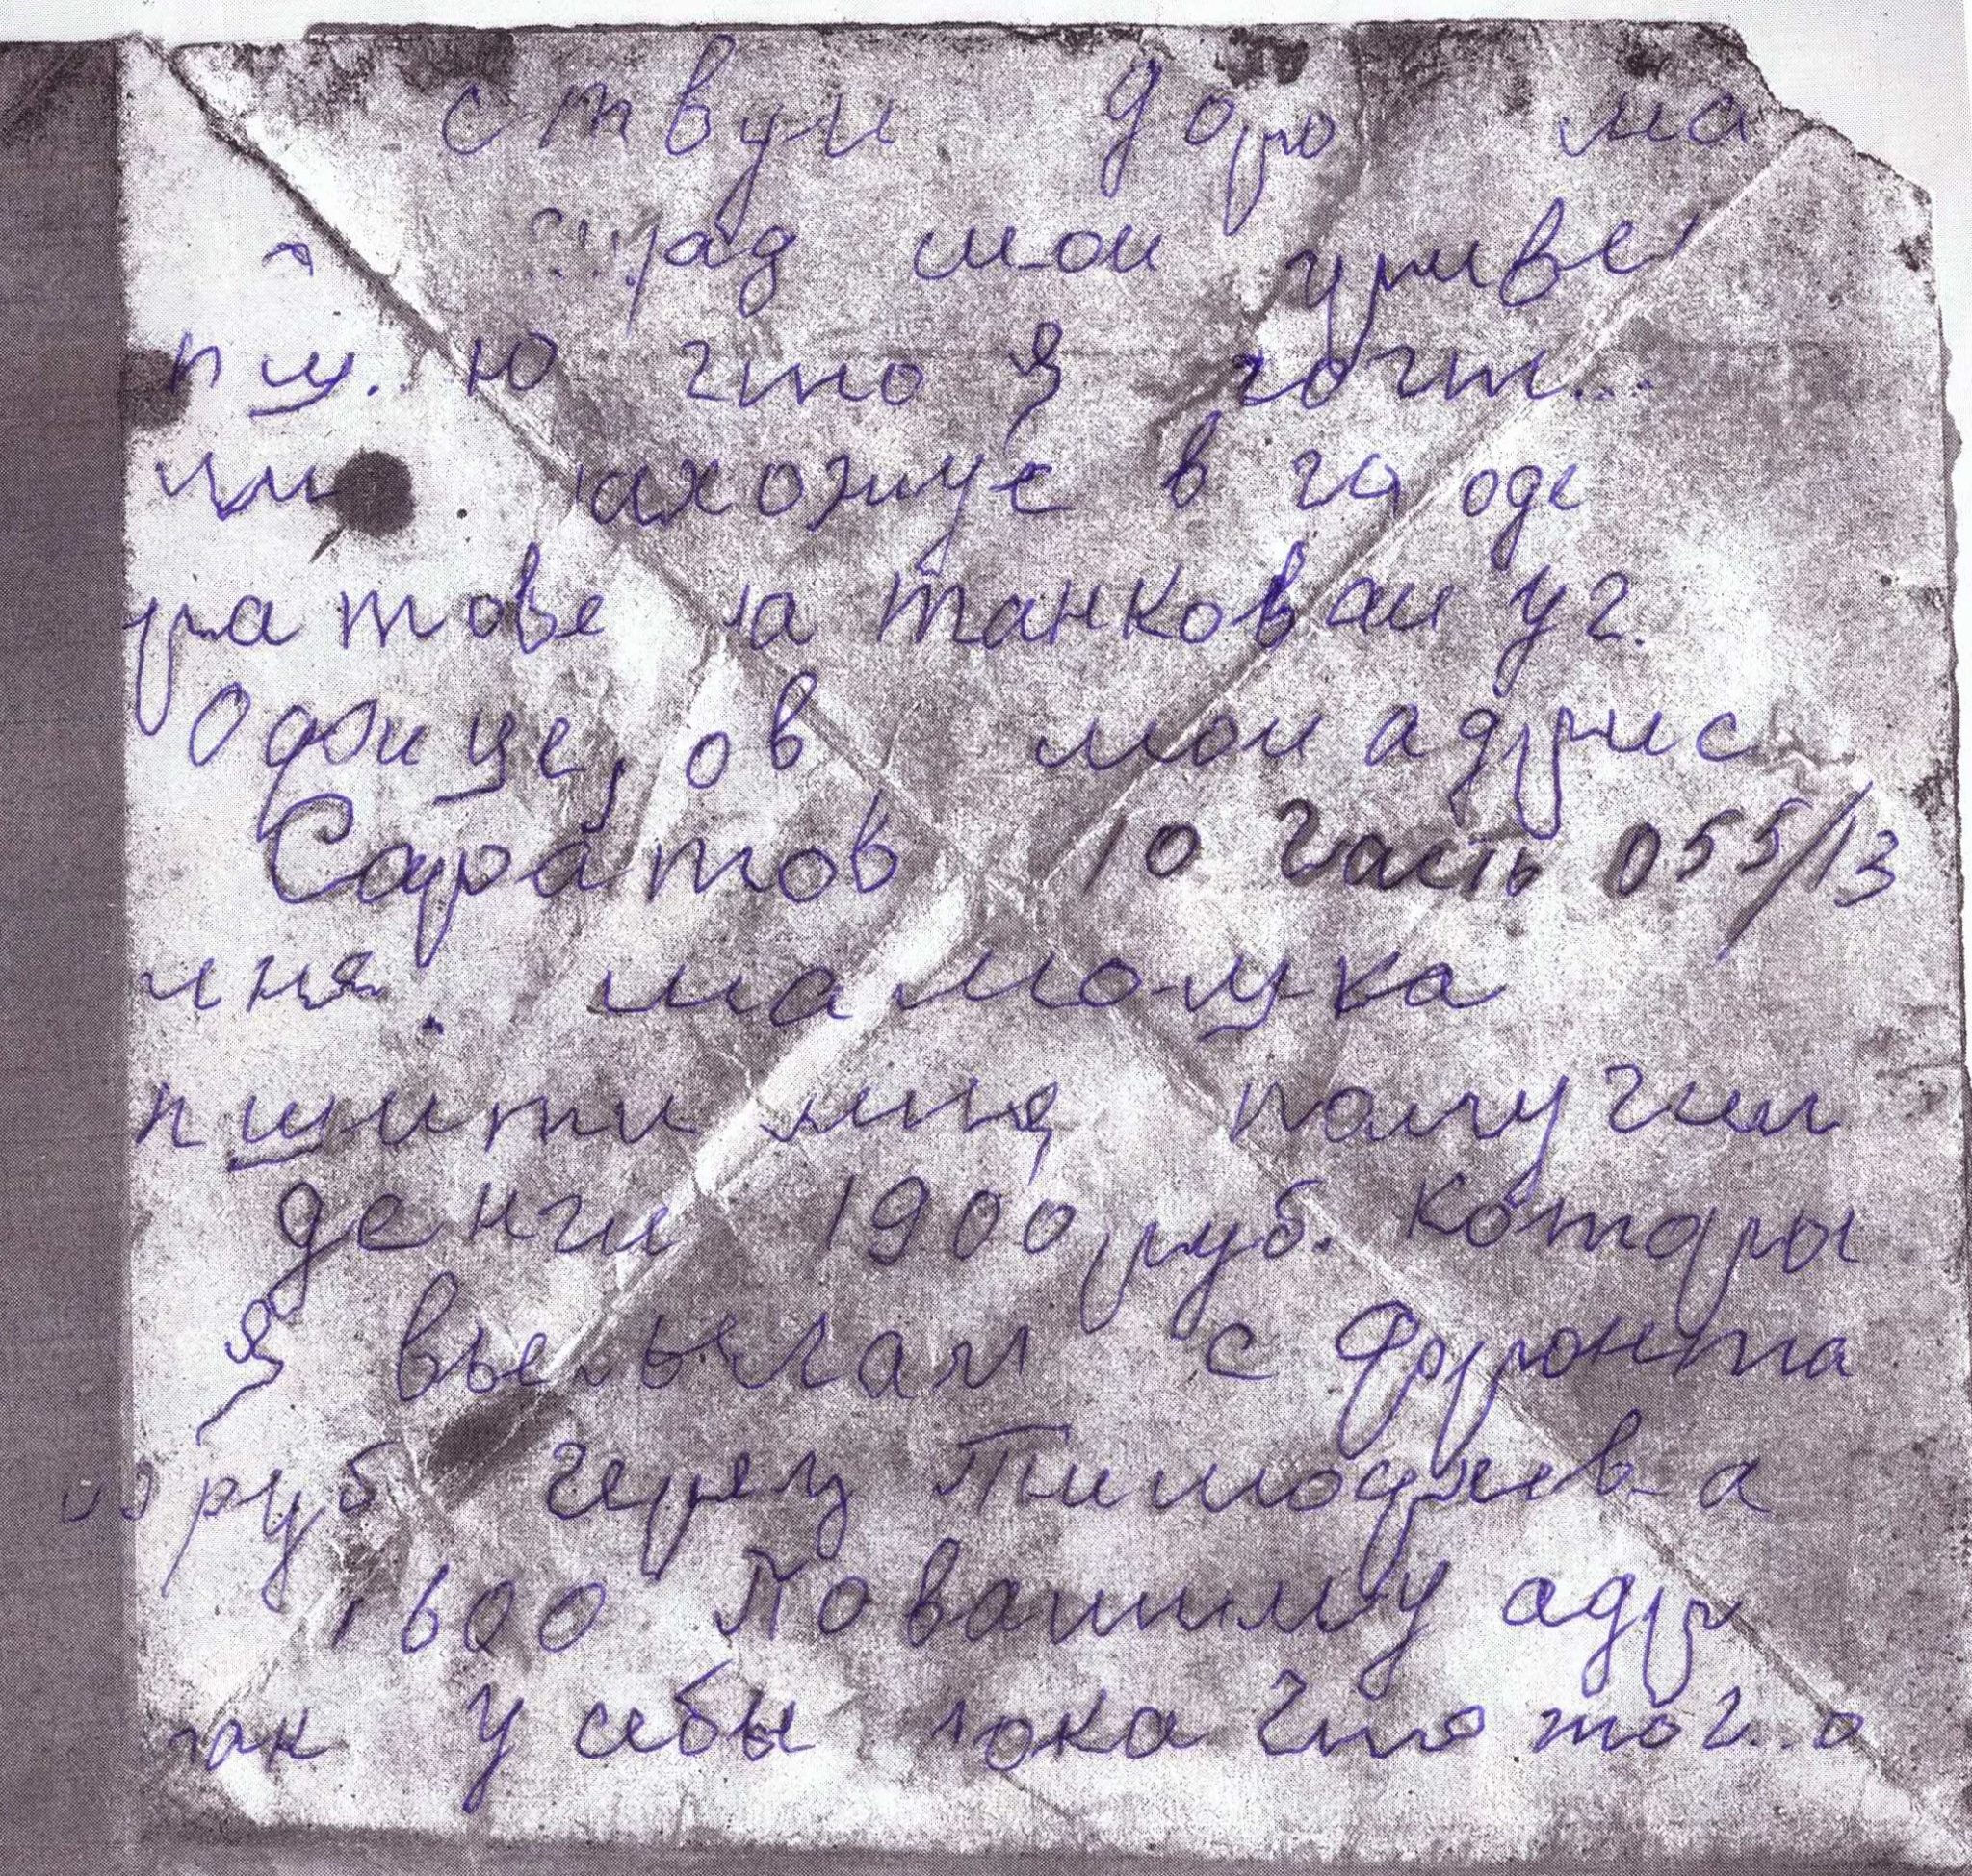 ствуи доро ма
рад мои приве
пш. ю что я
ахожусс в го оде
ратове на танковаи уч.
Офицеров мои адрис
Саратов 10 часть 055/13
мня. мамошка
пишити миня получил
денги 1900 руб. которы
я высылал с фронта
руб черяз Тимофиева
1600 Повашиму адр
так у себы пока что того